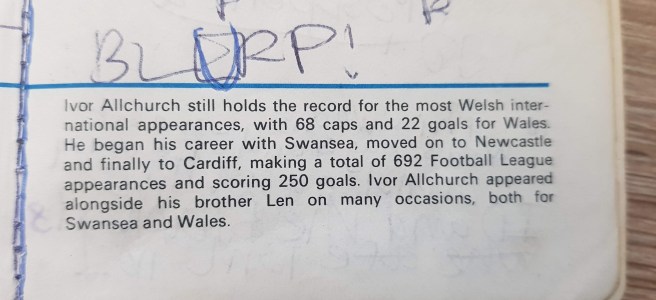 BLURP!
Ivor Allchurch still holds the record for the most Welsh inter-
national appearances, with 68 caps and 22 goals for Wales.
He began his career with Swansea, moved on to Newcastle
and finally to Cardiff, making a total of 692 Football League
appearances and scoring 250 goals. Ivor Allchurch appeared
alongside his brother Len on many occasions, both for
Swansea and Wales.